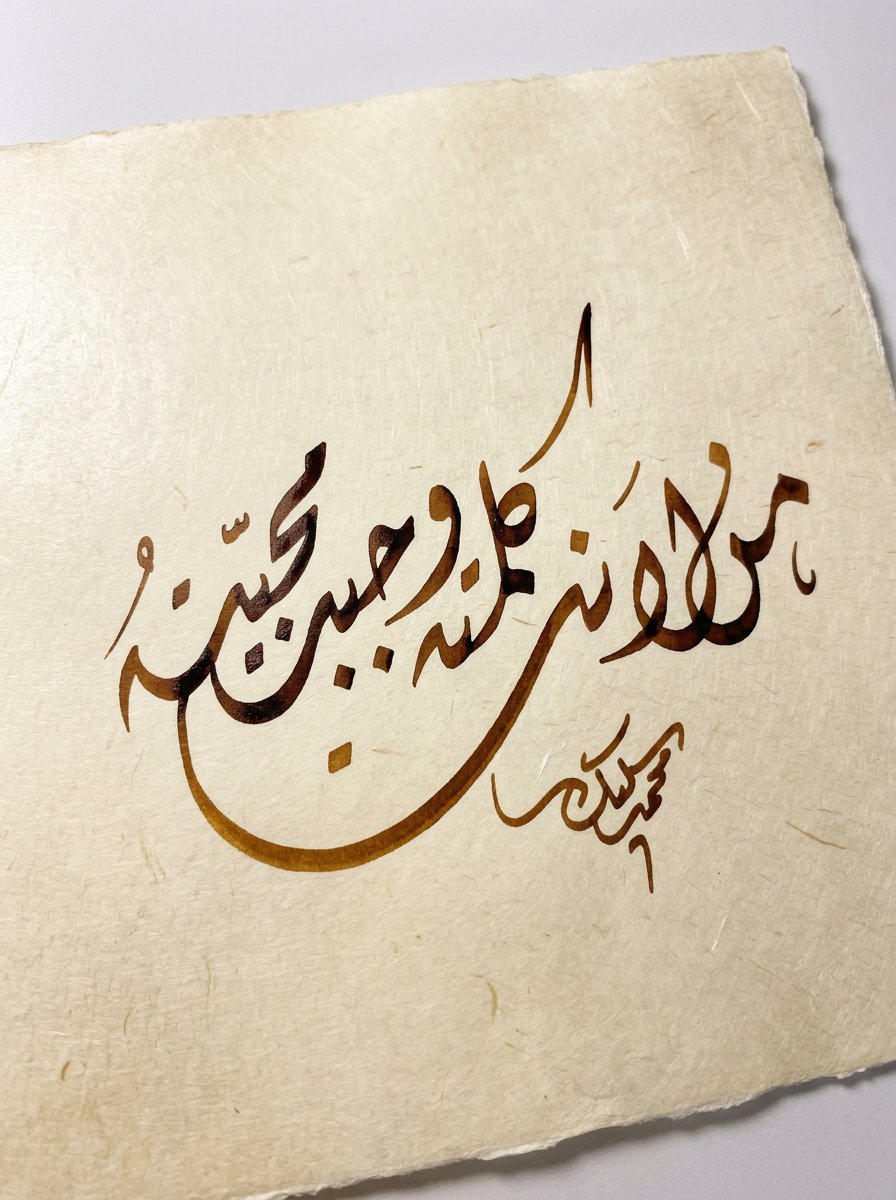 من لاَنت كلمته وجبت محبّتهُ
محمد